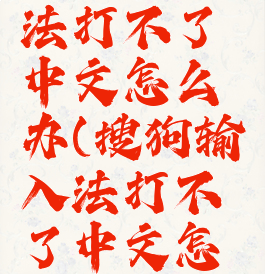 法打不了
中文怎么
办(搜狗输
入法打不
了中文怎